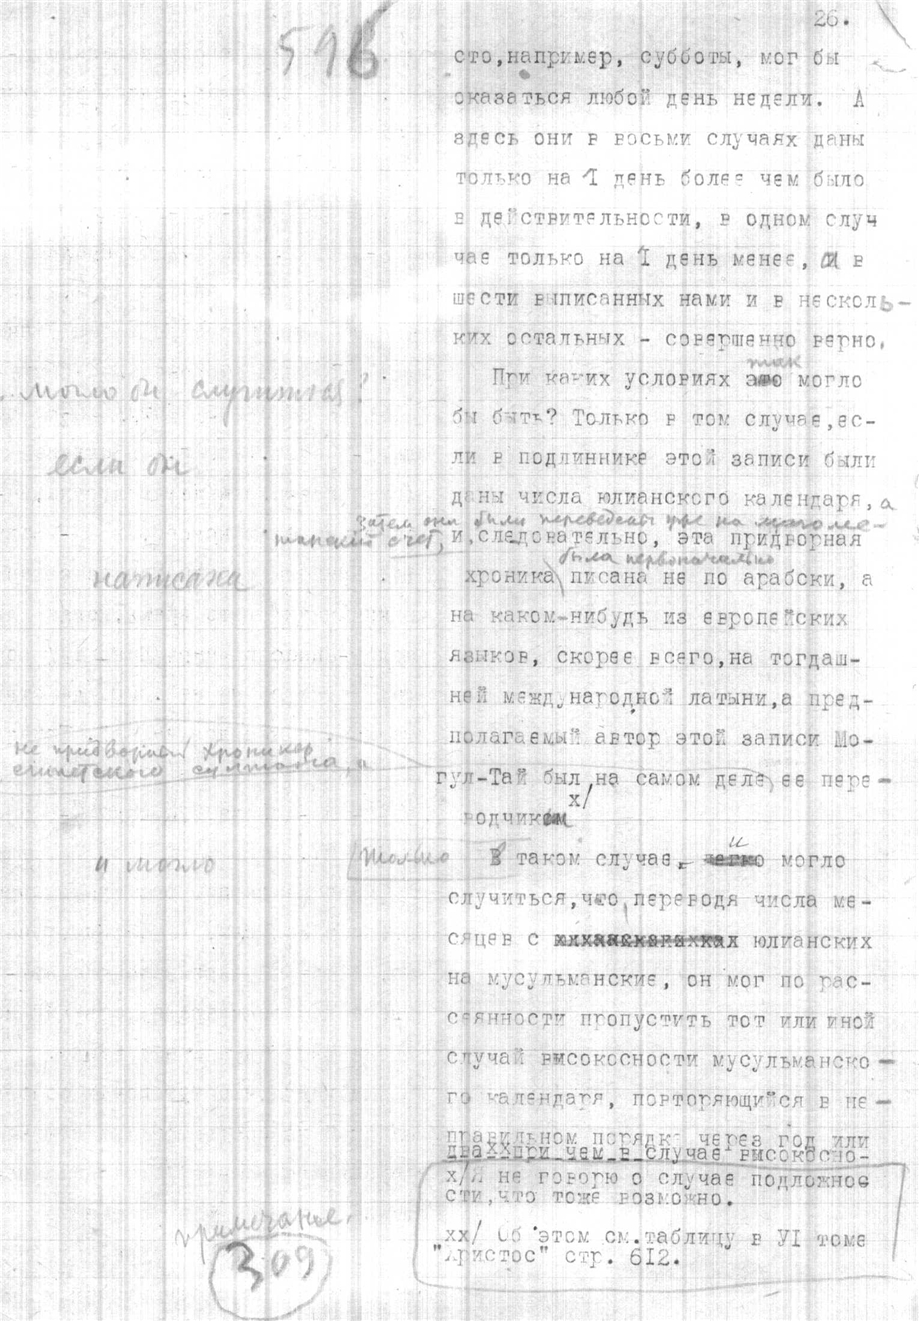 26.
596
сто,например, субботы, мог бы
оказаться любой день недели. А
здесь они в восьми случаях даны
только на 1 день более чем было
в действительности, в одном случ
чае только на 1 день менее, и в
шести выписанных нами и в несколь-
ких остальных - совершенно верно.
так
При каких условиях это могло
могло бы случиться?
бы быть? Только в том случае,ес-
если бы
ли в подлиннике этой записи были
даны числа юлианского календаря, а
затем они были переведены уже на магоме-
танский счет,
и,следовательно, эта придворная
была первоначально
написана
хроника писана не по арабски, а
на каком-нибудь из европейских
языков, скорее всего,на тогдаш-
ней международной латыни,а пред-
не придворный хроникер
полагаемый автор этой записи Мо-
египетского султана, а
гул-Тай был,на самом деле,ее пере-
х/
водчиком
и
и могло
только
В таком случае, легко могло
случиться,что,переводя числа ме-
сяцев с юлианских
на мусульманские, он мог по рас-
сеянности пропустить тот или иной
случай високосности мусульманско-
го календаря, повторяющийся в не-
правильном порядке через год или
дваХХпри чем в случае високосно-
х/Я не говорю о случае подложнос
сти,что тоже возможно.
примечание.
хх/ Об этом см.таблицу в УI томе
"Христос" стр. 612.
309